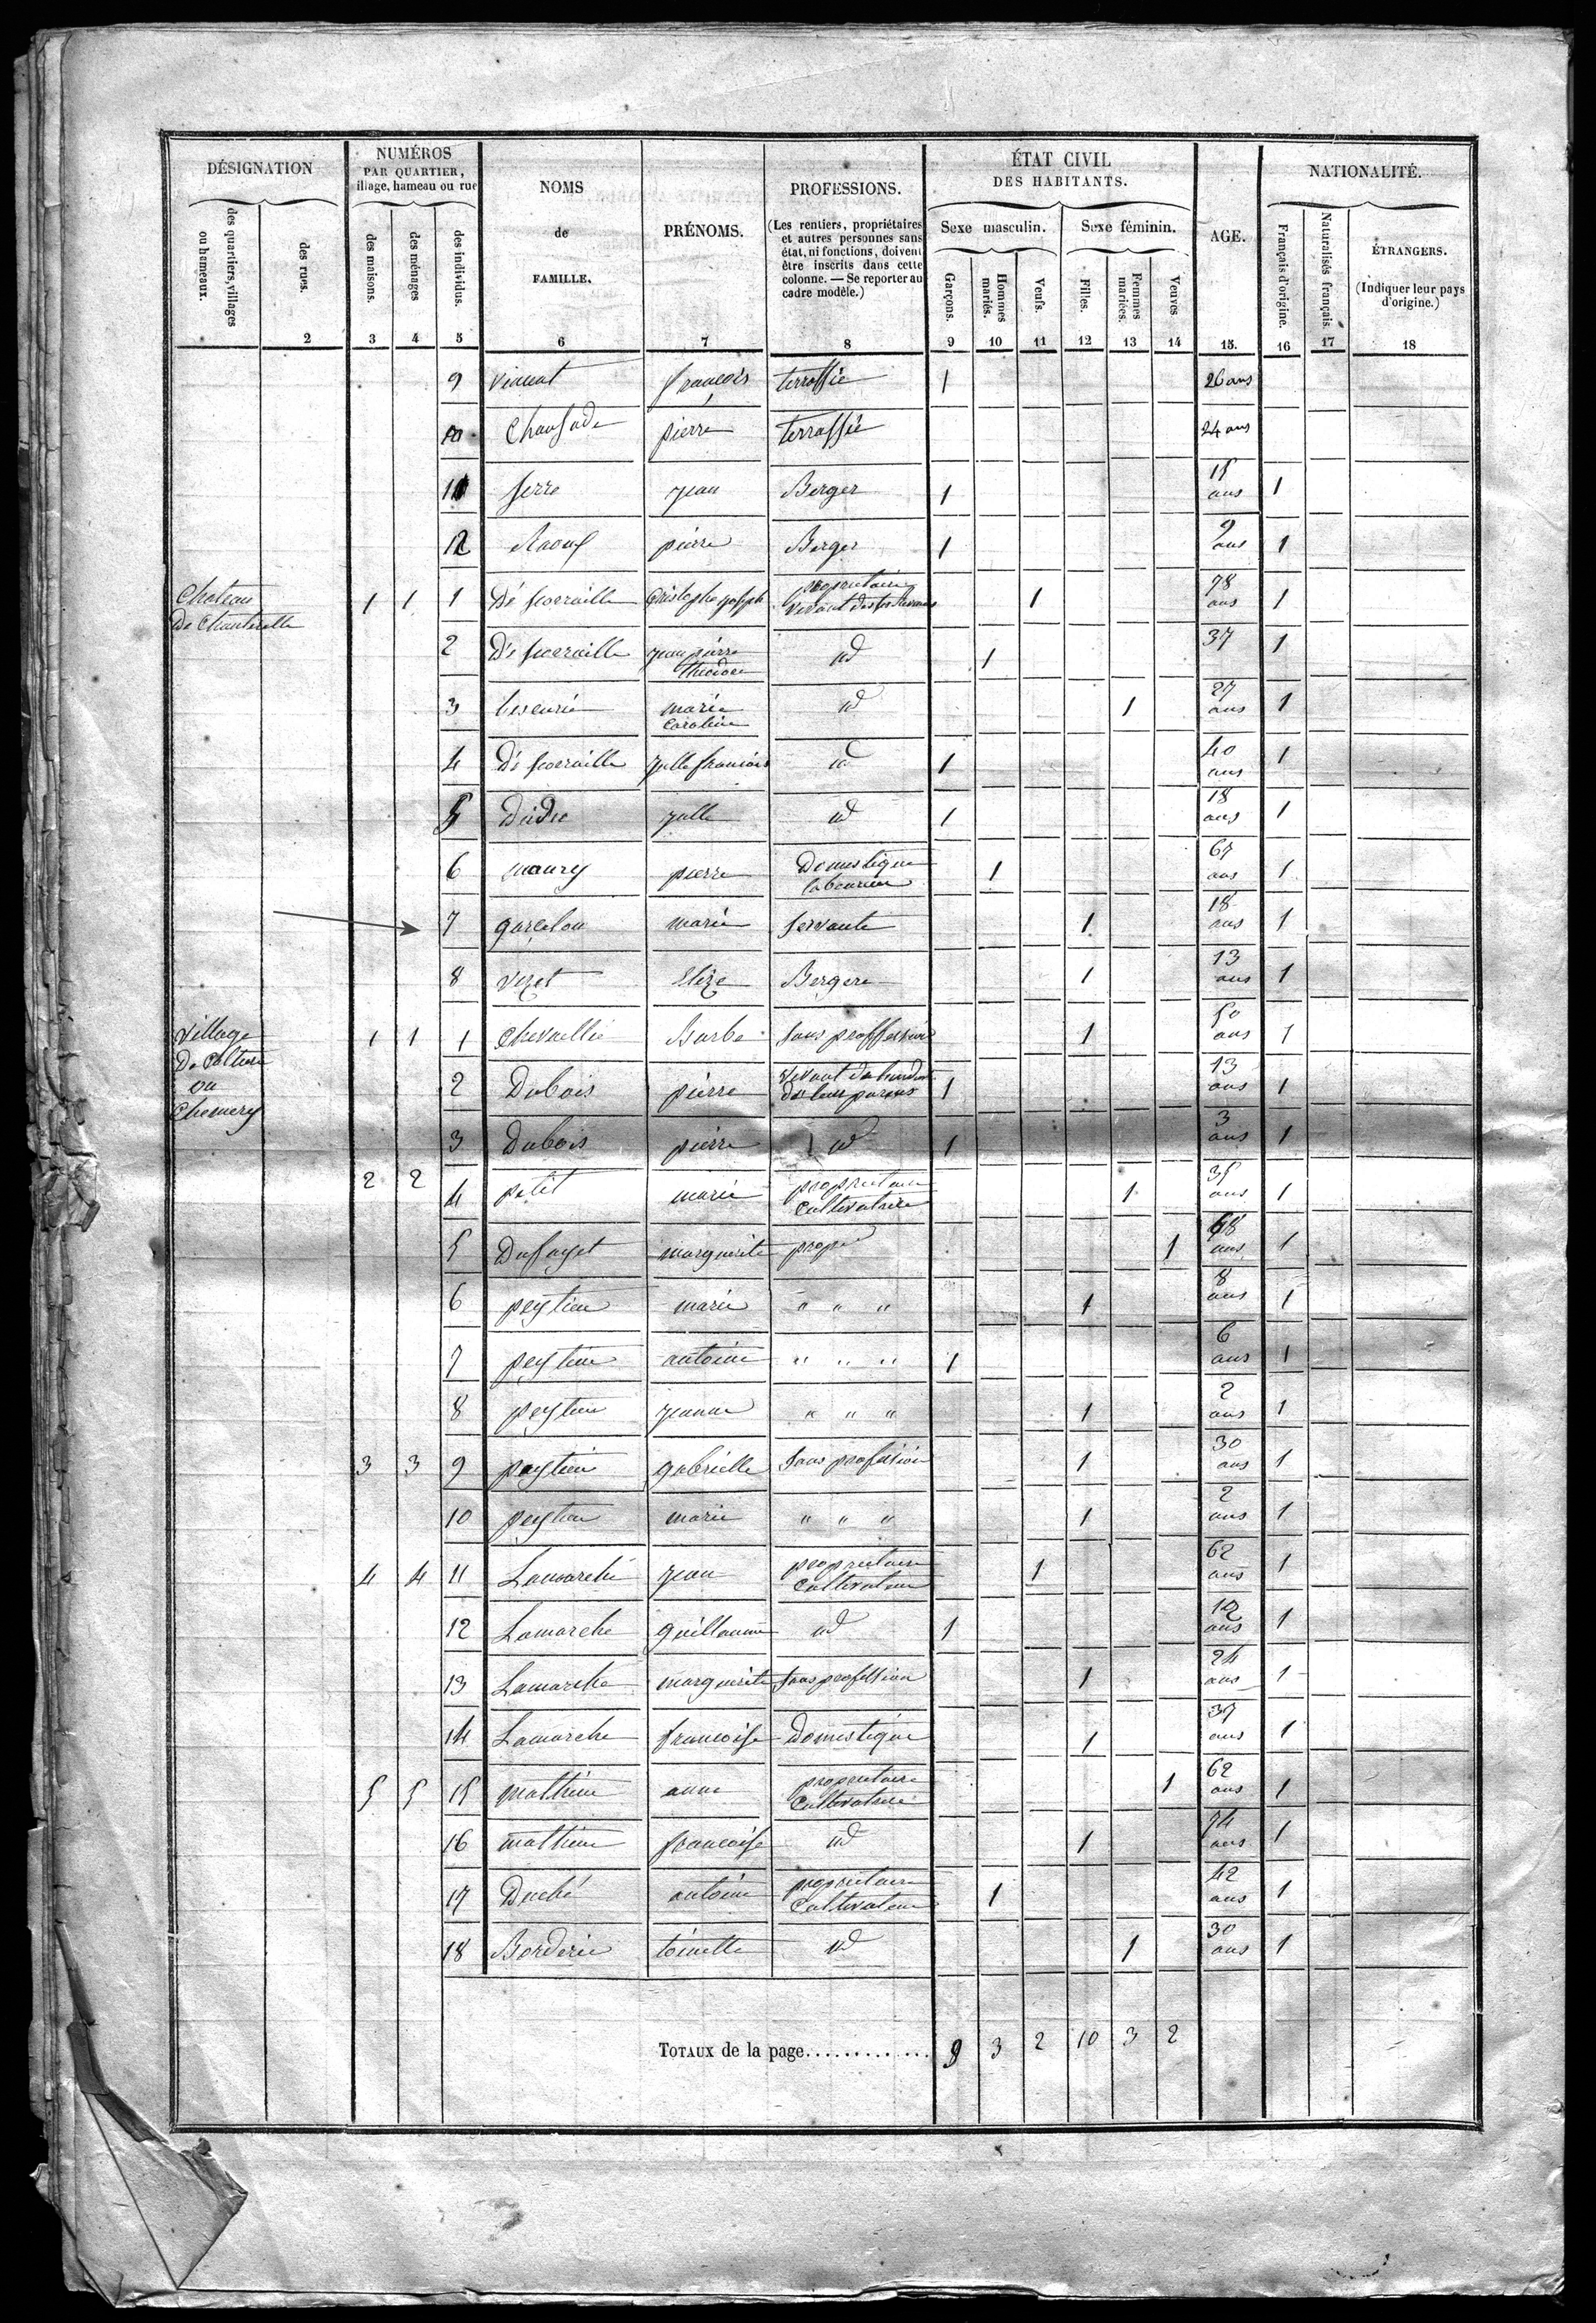 DÉSIGNATION
NUMÉROS
PAR QUARTIER,
illage, hameau ou rue
NOMS
de
FAMILLE.
PRÉNOMS.
PROFESSIONS.
(Les rentiers, propriétaires
et autres personnes sans
état, ni fonctions, doivent
être inscrits dans cette
colonne. — Se reporter au
cadre modèle.)
ÉTAT CIVIL
DES HABITANTS.
Sexe masculin.
Sexe féminin.
AGE.
NATIONALITÉ.
des quartiers, villages
ou hameaux.
des rues.
des maisons.
des ménages
des individus.
Garçons.
Hommes
mariés.
Veufs.
Filles.
Femmes
mariées.
Veuves
Français d'origine.
Naturalisés français.
ÉTRANGERS.
(Indiquer leur pays
d'origine.)
2 3 4 5 6 7 8 9 10 11 12 13 14 15. 16 17 18
9 françois terrassie 1 26 ans
10 pierre terrassie 24 ans
11 serre jean Berger 1 15 ans 1
12 Raouf pierre Berger 1 9 ans 1
Chateau
De Chanterelle
1 1 1 Dé scorraille Cristophe joseph propriétaire
vivant 1 78 ans 1
2 Dé scorraille jean pierre
théodore id 1 37 1
3 lescurie marie
caroline id 1 27 ans 1
4 Dé scorraille julle francois id 1 40 ans 1
5 julle id 1 18 ans 1
6 maury pierre Domestique
laboureur 1 67 ans 1
7 garcelon marie servante 1 18 ans 1
8 vezet Elize Bergere 1 13 ans 1
village
De Colture
ou
Chemery
1 1 1 chevallié Barbe sans proffession 1 50 ans 1
2 Dubois pierre vivant
de leur parens 1 13 ans 1
3 Dubois pierre id 1 3 ans 1
2 2 4 petit marie propriétaire
Cultivatrice 1 35 ans 1
5 Dufayet marguerite 1 68 ans 1
6 peytieu marie " " " 1 8 ans 1
7 peytieu antoine " " " 1 6 ans 1
8 peytieu jeanne " " " 1 2 ans 1
3 3 9 peytieu gabrielle sans profession 1 30 ans 1
10 peytieu marie " " " 1 2 ans 1
4 4 11 Lamarche jean propriétaire
Cultivateur 1 62 ans 1
12 Lamarche guillaume id 1 12 ans 1
13 Lamarche marguerite sans profession 1 24 ans 1
14 Lamarche francoise Domestique 1 37 ans 1
5 5 15 mathieu anne propriétaire
Cultivatrice 1 62 ans 1
16 mathieu francoise id 1 74 ans 1
17 Duché antoine propriétaire
Cultivateur 1 42 ans 1
18 Borderie toinette id 1 30 ans 1
TOTAUX de la page............. 9 3 2 10 3 2